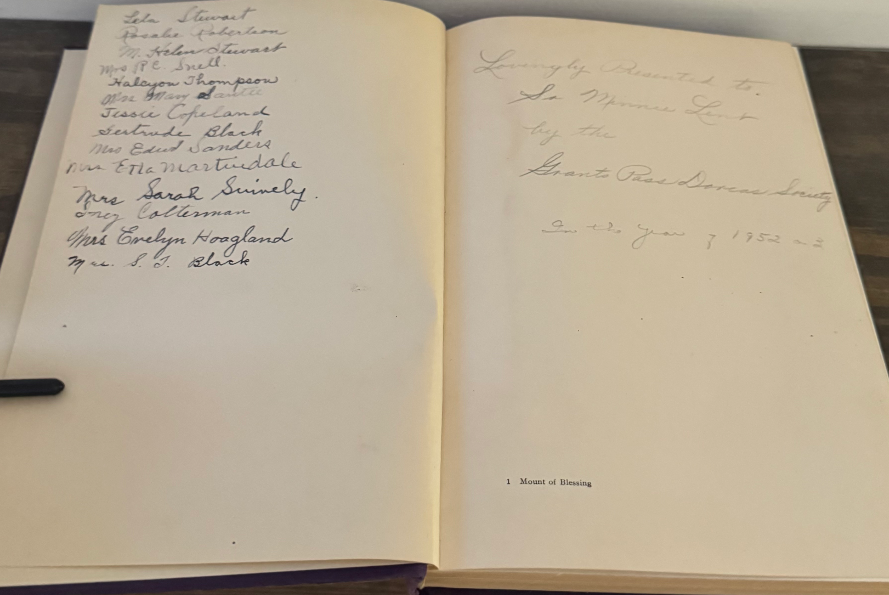 Lela Stewart
Rosalie Robertson
M. Helen Stewart
Mrs R C. Snell.
Halcyon Thompson
Mrs Mary
Jessie Copeland
Gertrude Black
Mrs Edud Sanders
Mrs Etta Martindale
Mrs Sarah Snively.
Colterman
Mrs Evelyn Hoagland
Mrs. S. T. Black
Lovingly Presented to.
Sr Minnie Lent
by the
Grants Pass Dorcas Society
In the Year of 1952 A.D.
1 Mount of Blessing